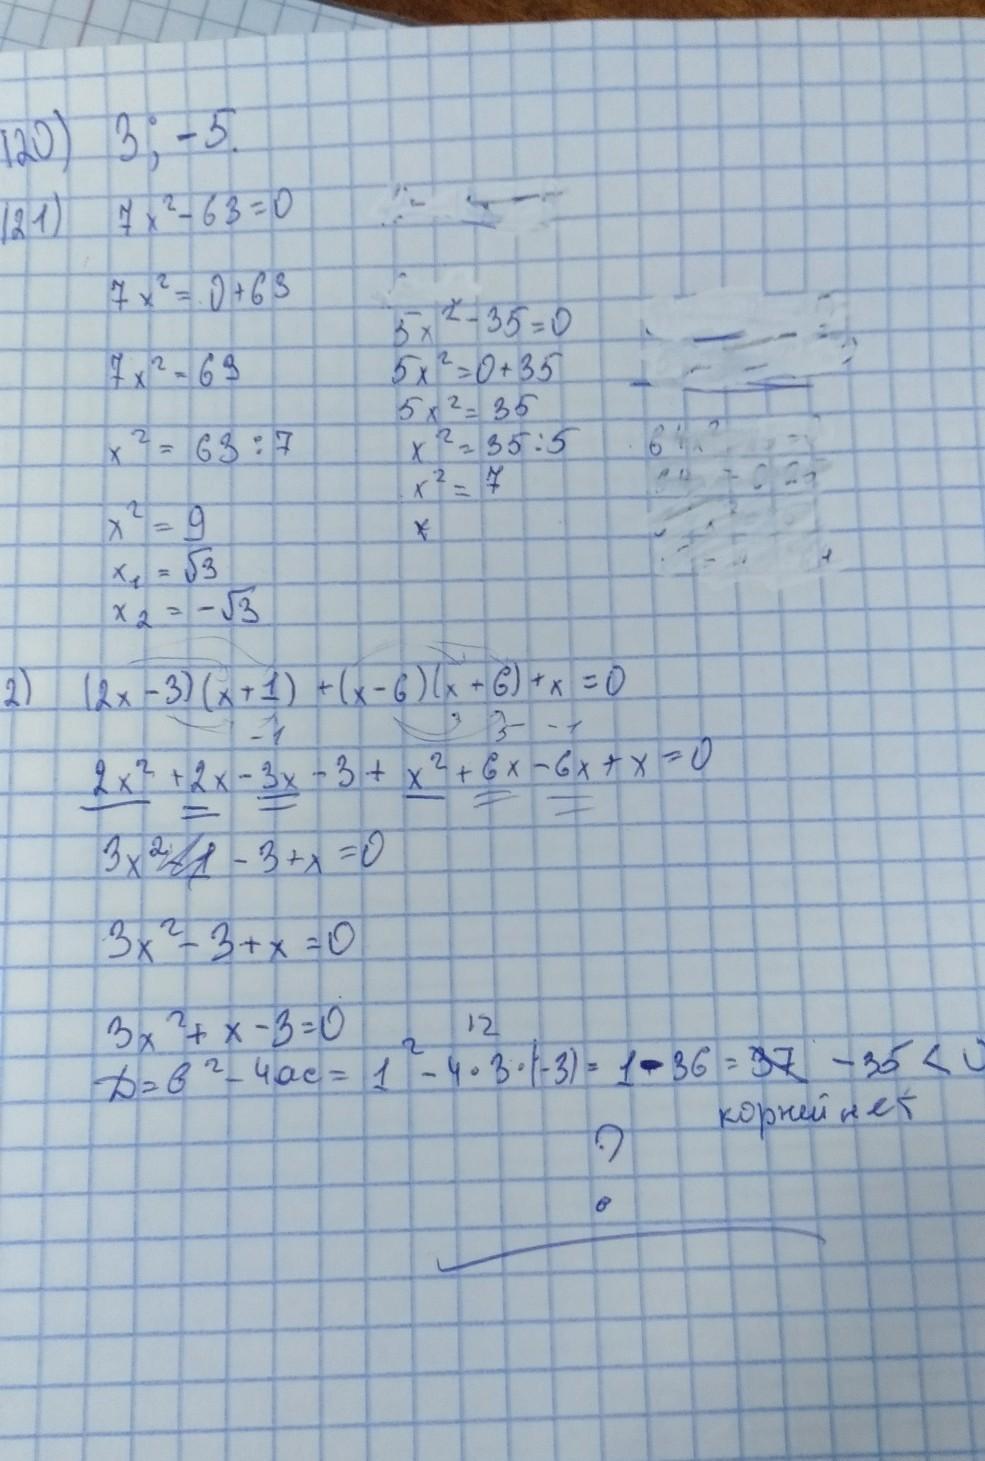 120) 3; -5.
121) 7x² - 63 = 0
7x² = 0 + 63
7x² = 63
x² = 63 : 7
x² = 9
x₁ = √3
x₂ = -√3
5x² - 35 = 0
5x² = 0 + 35
5x² = 35
x² = 35 : 5
x² = 7
x
2) (2x - 3)(x + 1) + (x - 6)(x + 6) + x = 0
-1
2x² + 2x - 3x - 3 + x² + 6x - 6x + x = 0
3x² - 1 - 3 + x = 0
3x² - 3 + x = 0
3x² + x - 3 = 0
12
D = b² - 4ac = 1² - 4 · 3 · (-3) = 1 - 36 = 37 - 35 < 0
корней нет
?